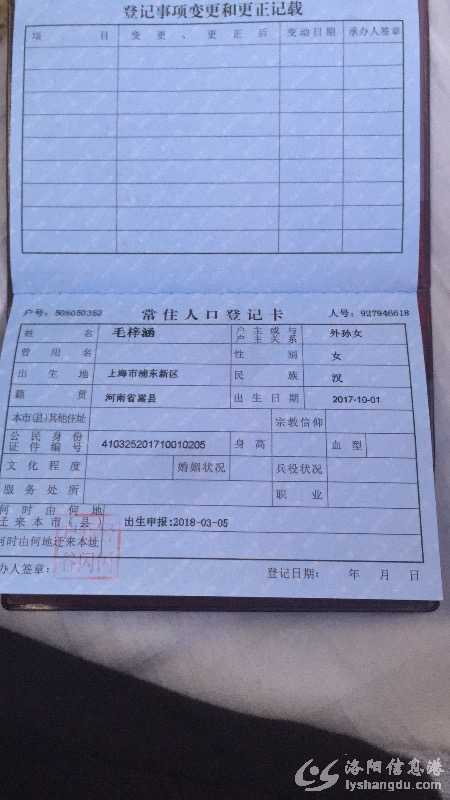 登记事项变更和更正记载
项 目 变 更 、 更 正 后 变动日期 承办人签章
户号: 508050352 常住人口登记卡 人号: 927946618
姓 名 毛梓涵 户主或与户主关系 外孙女
曾 用 名 性 别 女
出 生 地 上海市浦东新区 民 族 汉
籍 贯 河南省嵩县 出 生 日 期 2017-10-01
本市(县)其他住址 宗教信仰
公民身份证件编号 410325201710010205 身 高 血 型
文 化 程 度 婚姻状况 兵役状况
服 务 处 所 职 业
何时由何地迁来本市(县) 出生申报:2018-03-05
何时由何地迁来本址
办人签章: 登记日期: 年 月 日
洛阳信息港
lyshangdu.com